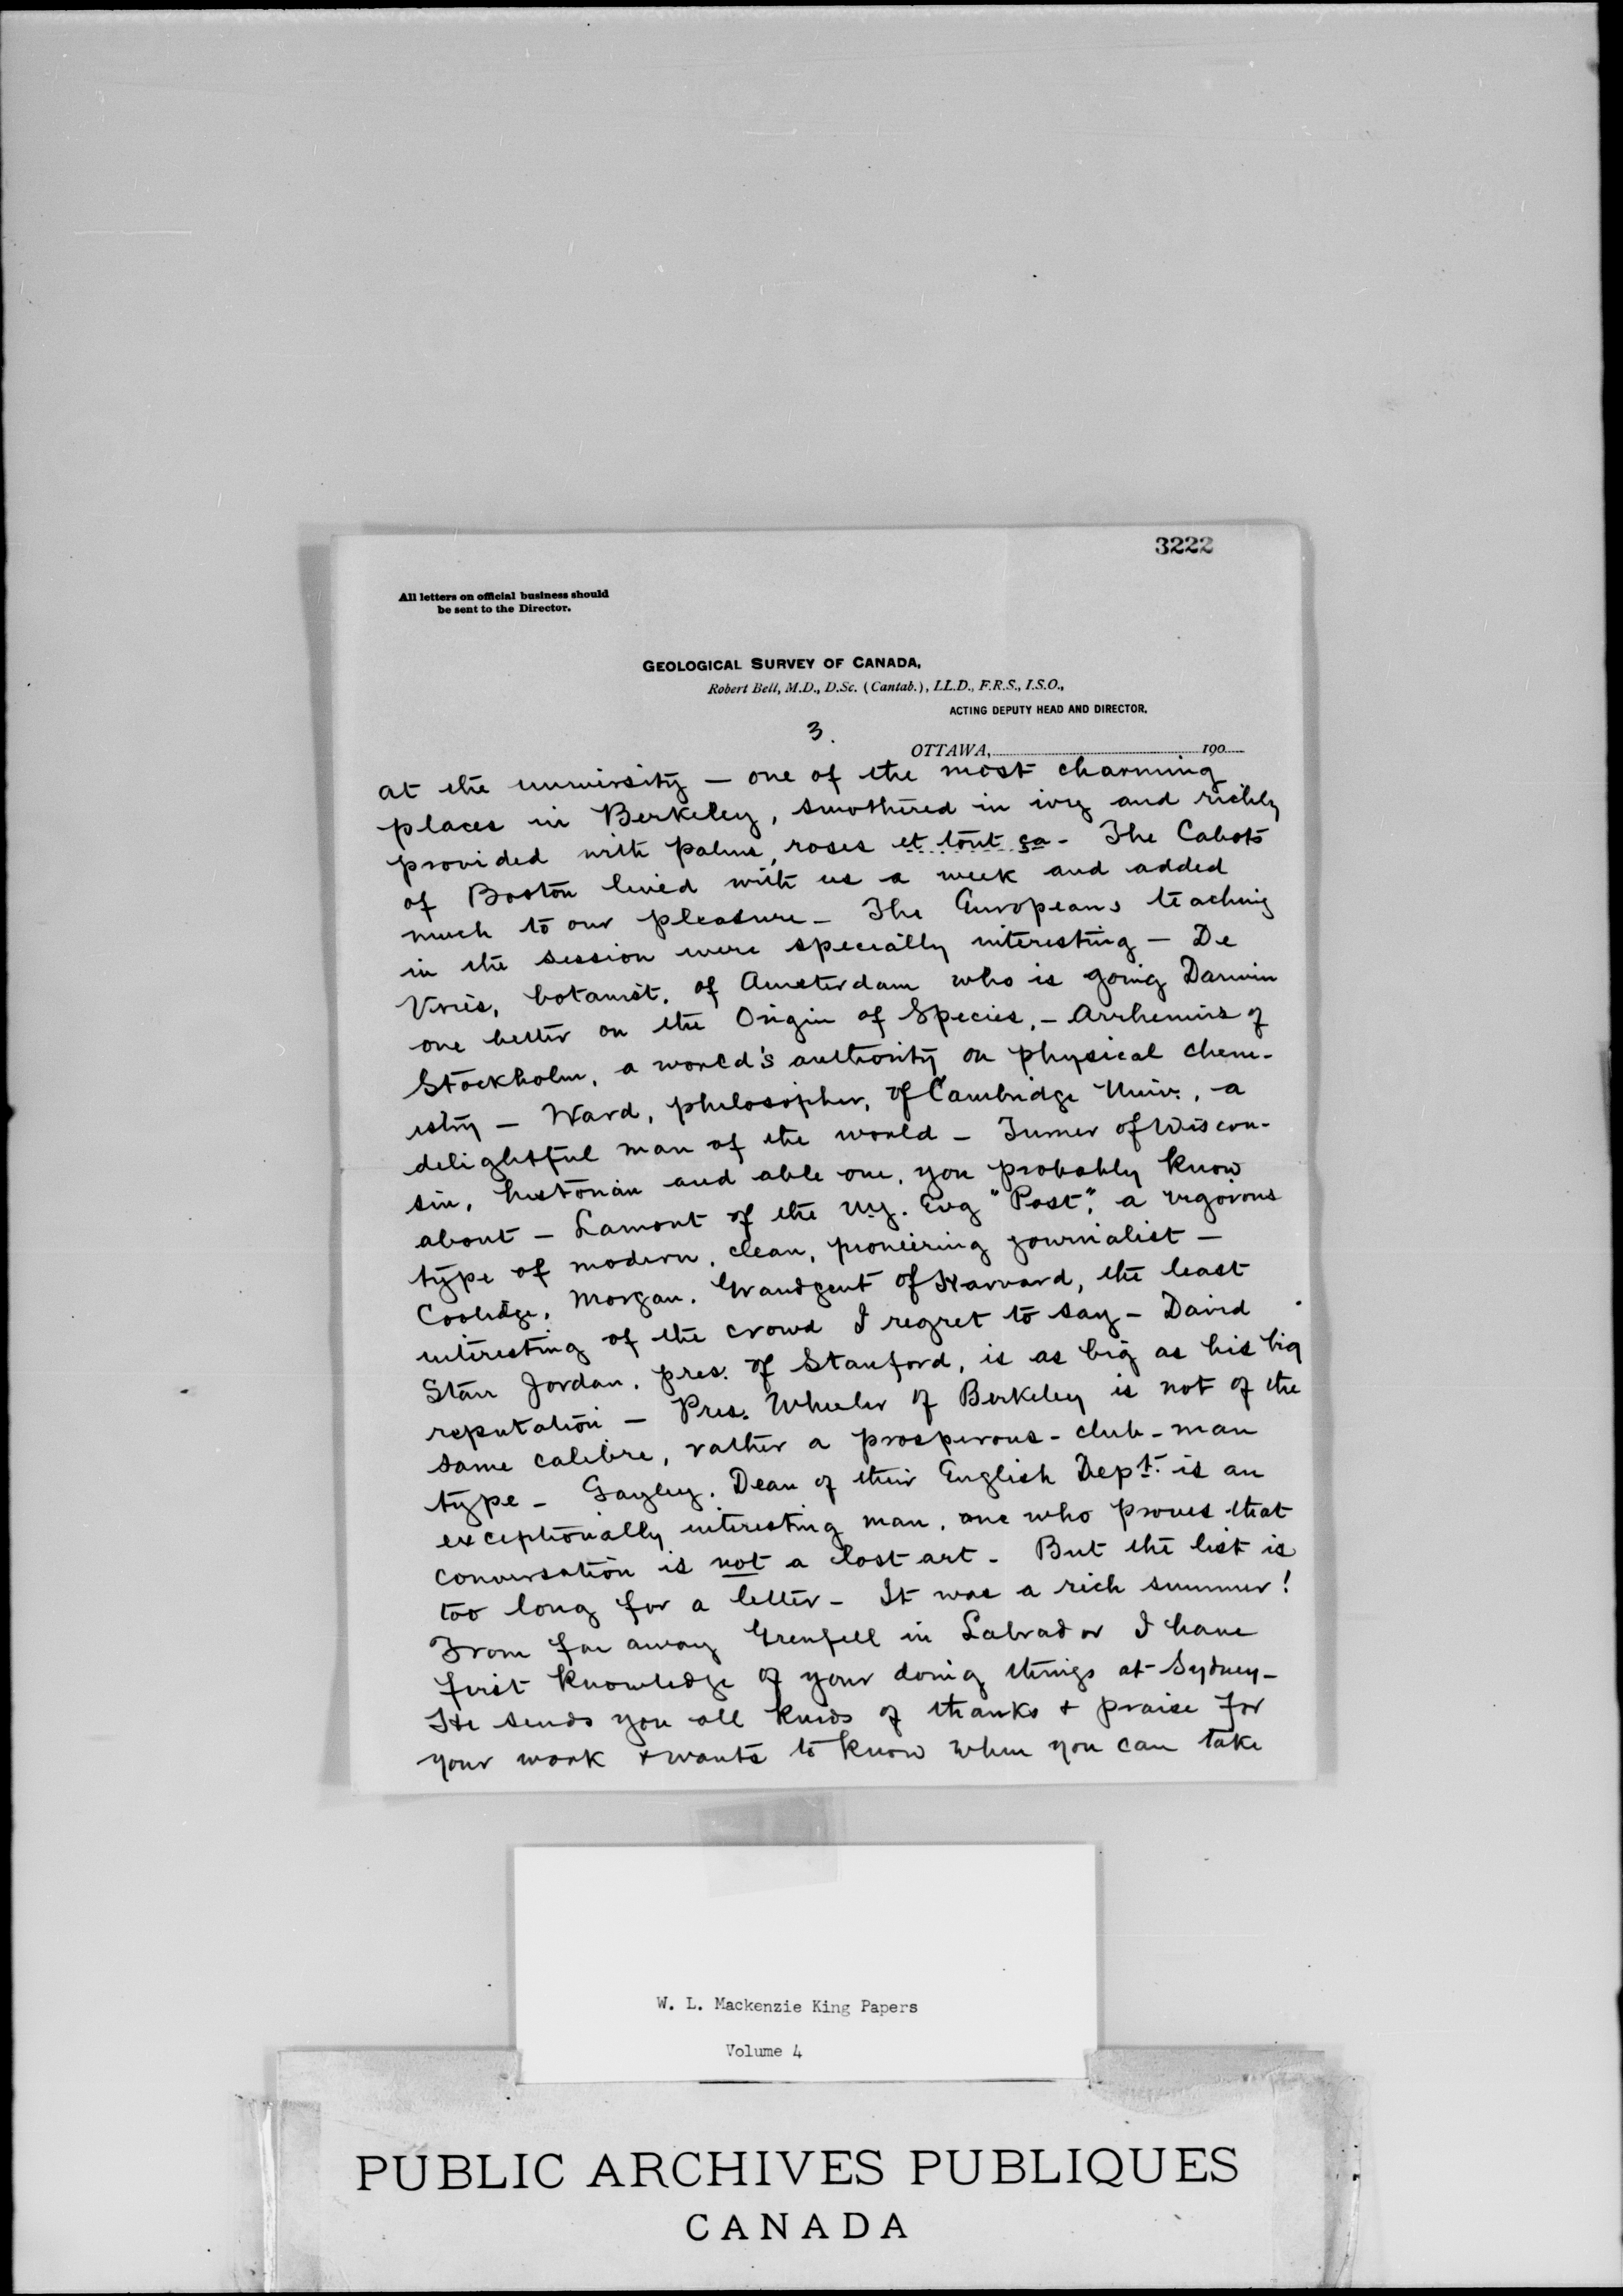 3222
All letters on official business should
be sent to the Director.
GEOLOGICAL SURVEY OF CANADA,
Robert Bell, M.D., D.Sc. (Cantab.), LL.D., F.R.S., I.S.O.,
ACTING DEPUTY HEAD AND DIRECTOR.
3.
OTTAWA, 190
at the university — one of the most charming
places in Berkeley, smothered in ivy and richly
provided with palms, roses et tout ça - The Cabots
of Boston lived with us a week and added
much to our pleasure - The Europeans teaching
in the session were specially interesting — De
Vries, botanist, of Amsterdam who is going Darwin
one better on the Origin of Species, - Arrhenius of
Stockholm, a world's authority on physical chem-
istry — Ward, philosopher, of Cambridge Univ., a
delightful man of the world - Turner of Wiscon-
sin, historian and able one, you probably know
about - Lamont of the N.Y. Evg "Post", a vigorous
type of modern, clean, pioneering journalist —
Coolidge, Morgan, Grandgent of Harvard, the least
interesting of the crowd I regret to say - David
Starr Jordan, pres. of Stanford, is as big as his big
reputation — Pres. Wheeler of Berkeley is not of the
same calibre, rather a prosperous-club-man
type - Gayley, Dean of their English Dept. is an
exceptionally interesting man, one who proves that
conversation is not a lost art - But the list is
too long for a letter - It was a rich summer!
From far away Grenfell in Labrador I have
first knowledge of your doing things at Sydney -
He sends you all kinds of thanks & praise for
your work & wants to know when you can take
W. L. Mackenzie King Papers
Volume 4
PUBLIC ARCHIVES PUBLIQUES
CANADA